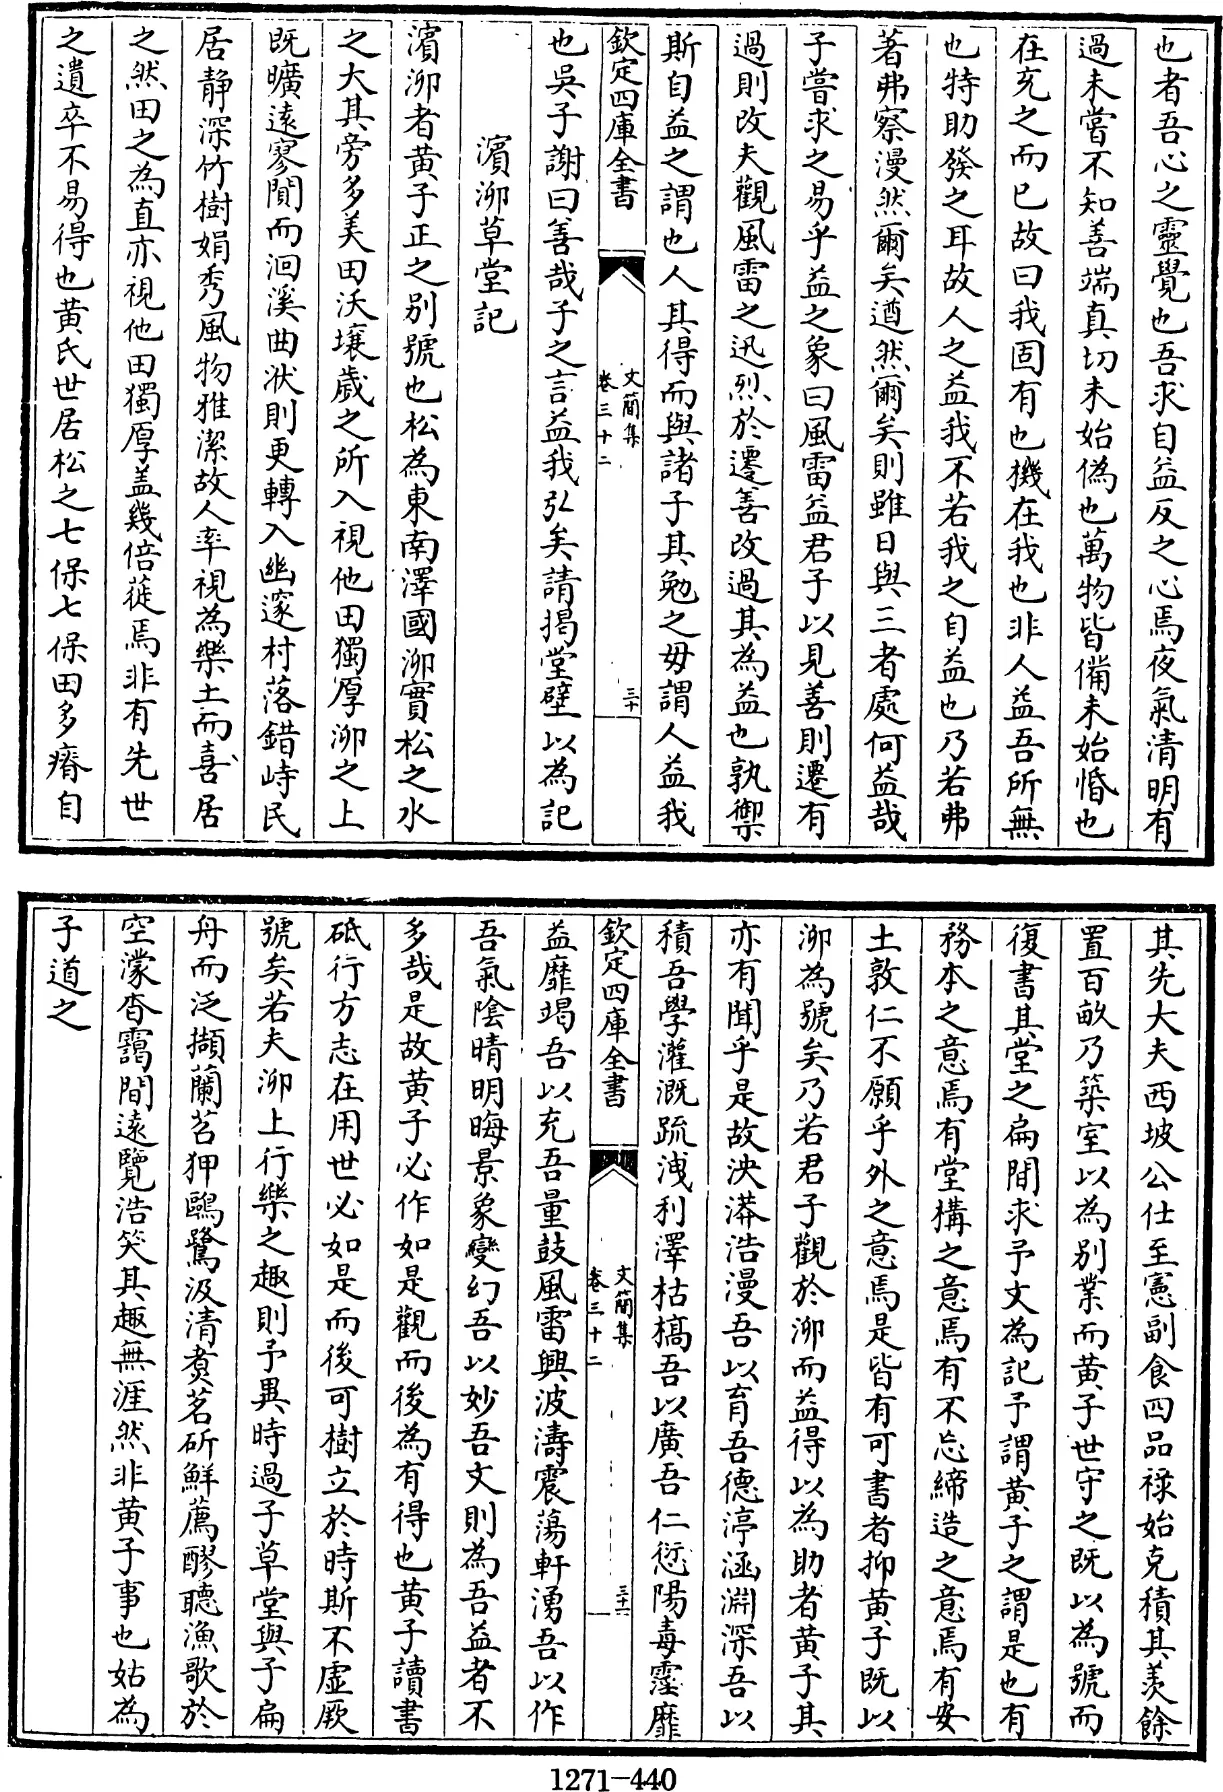 也者吾心之靈覺也吾求自益反之心焉夜氣清明有
過未嘗不知善端真切未始偽也萬物皆備未始惛也
在充之而已故曰我固有也機在我也非人益吾所無
也特助發之耳故人之益我不若我之自益也乃若弗
著弗察漫然爾矣遒然爾矣則雖日與三者處何益哉
子嘗求之易乎益之象曰風雷益君子以見善則遷有
過則改夫觀風雷之迅烈於遷善改過其為益也孰禦
斯自益之謂也人其得而與諸子其勉之毋謂人益我
欽定四庫全書
文簡集
卷三十二
三十
也吳子謝曰善哉子之言益我弘矣請揭堂壁以為記
濱泖草堂記
濱泖者黃子正之別號也松為東南澤國泖實松之水
之大其旁多美田沃壤歲之所入視他田獨厚泖之上
既曠遠寥閴而洄溪曲洑則更轉入幽邃村落錯峙民
居靜深竹樹娟秀風物雅潔故人率視為樂土而喜居
之然田之為直亦視他田獨厚盖幾倍蓰焉非有先世
之遺卒不易得也黃氏世居松之七保七保田多瘠自
其先大夫西坡公仕至憲副食四品祿始克積其羨餘
置百畝乃築室以為別業而黃子世守之既以為號而
復書其堂之扁間求予文為記予謂黃子之謂是也有
務本之意焉有堂構之意焉有不忘締造之意焉有安
土敦仁不願乎外之意焉是皆有可書者抑黃子既以
泖為號矣乃若君子觀於泖而益得以為助者黃子其
亦有聞乎是故泱漭浩漫吾以育吾德渟涵淵深吾以
積吾學灌溉疏洩利澤枯槁吾以廣吾仁愆陽毒霪靡
欽定四庫全書
文簡集
卷三十二
三十一
益靡竭吾以充吾量鼓風雷興波濤震蕩軒湧吾以作
吾氣陰晴明晦景象變幻吾以妙吾文則為吾益者不
多哉是故黃子必作如是觀而後為有得也黃子讀書
砥行方志在用世必如是而後可樹立於時斯不虛厥
號矣若夫泖上行樂之趣則予異時過子草堂與子扁
舟而泛擷蘭茗狎鷗鷺汲清煑茗斫鮮薦醪聽漁歌於
空濛杳靄間遠覽浩笑其趣無涯然非黃子事也姑為
子道之
1271-440